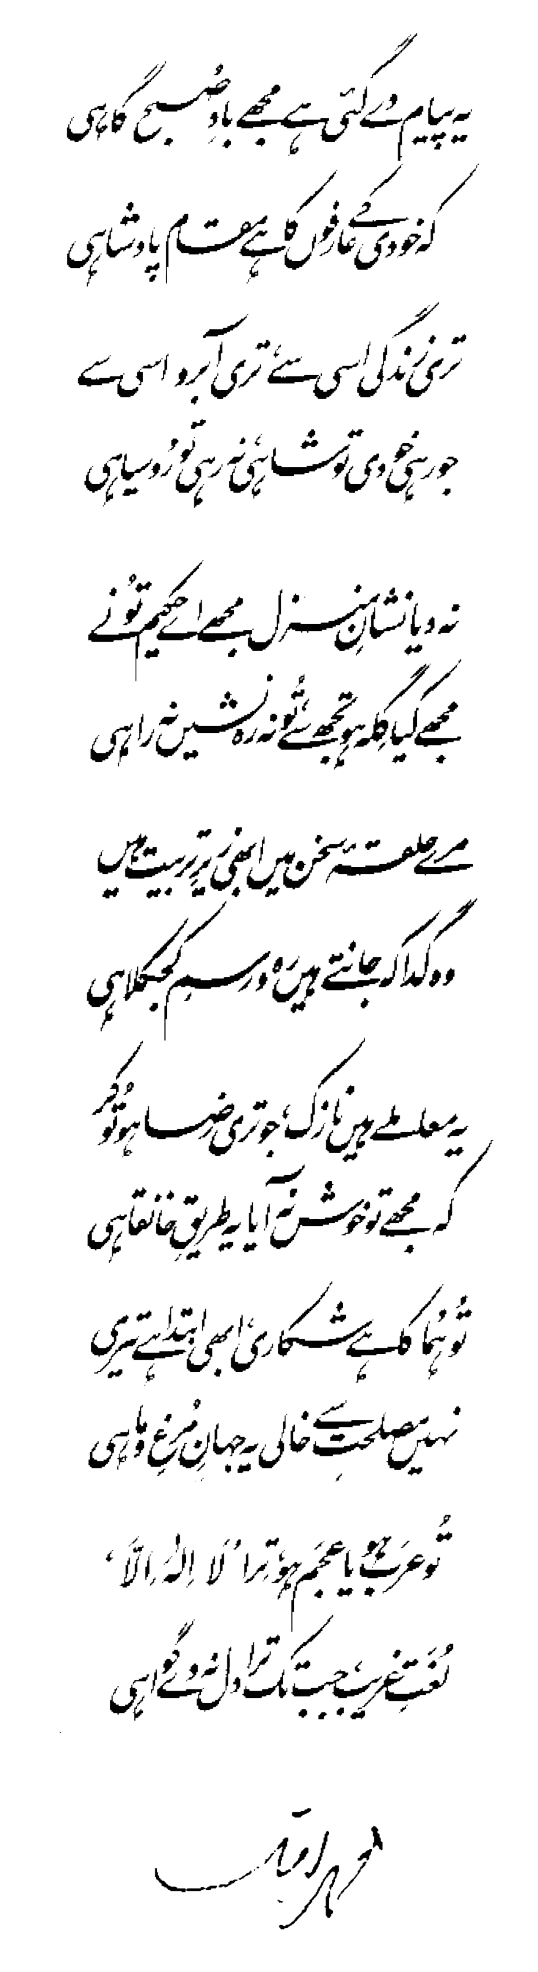 یہ پیام دے گئی ہے مجھے بادِ صُبح گاہی
کہ خودی کے عارفوں کا ہے مقام پادشاہی
تری زندگی اسی سے، تری آبرو اسی سے
جو رہی خودی تو شاہی، نہ رہی تو رُوسیاہی
نہ دیا نشانِ منزل مجھے اے حکیم تُو نے
مجھے کیا گِلہ ہو تجھ سے، تُو نہ رہ نشیں نہ راہی
مرے حلقۂ سخن میں ابھی زیرِ تربیت ہیں
وہ گدا کہ جانتے ہیں رہ و رسمِ کجکلاہی
یہ معاملے ہیں نازک، جو تری رضا ہو تُو کر
کہ مجھے تو خوش نہ آیا یہ طریقِ خانقاہی
تُو ہُما کا ہے شکاری، ابھی ابتدا ہے تیری
نہیں مصلحت سے خالی یہ جہانِ مُرغ و ماہی
تُو عَرب ہو یا عجَم ہو، ترا ’ لَا اِلٰہ اِلاَّ ‘
لُغتِ غریب، جب تک ترا دل نہ دے گواہی
محمد اقبال